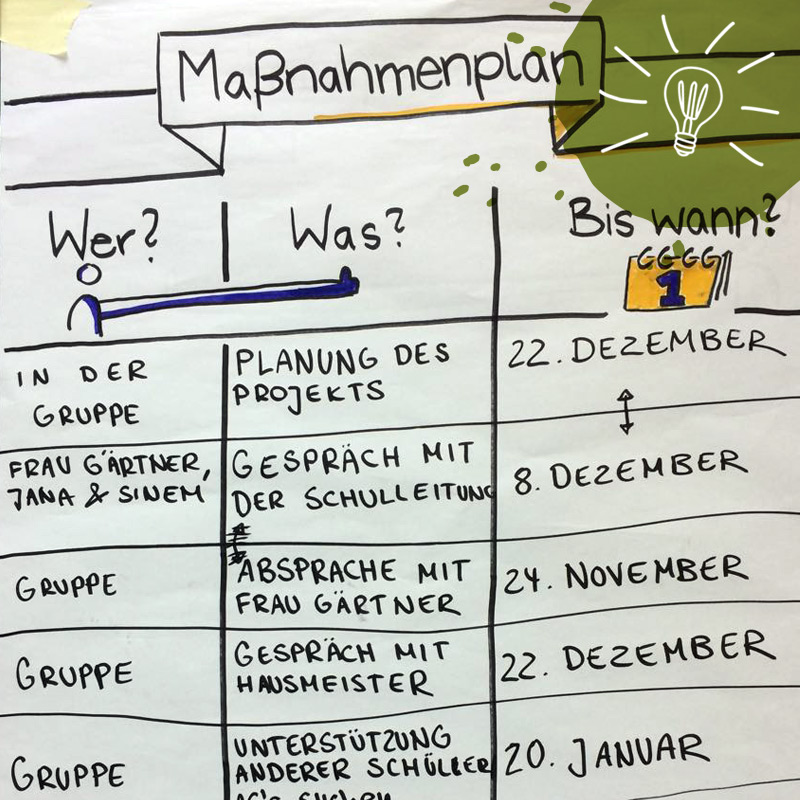 Maßnahmenplan
Wer?
Was?
Bis wann?
1
IN DER
GRUPPE
PLANUNG DES
PROJEKTS
22. DEZEMBER
FRAU GÄRTNER,
JANA & SINEM
GESPRÄCH MIT
DER SCHULLEITUNG
8. DEZEMBER
GRUPPE
ABSPRACHE MIT
FRAU GÄRTNER
24. NOVEMBER
GRUPPE
GESPRÄCH MIT
HAUSMEISTER
22. DEZEMBER
GRUPPE
UNTERSTÜTZUNG
ANDERER SCHÜLER
20. JANUAR